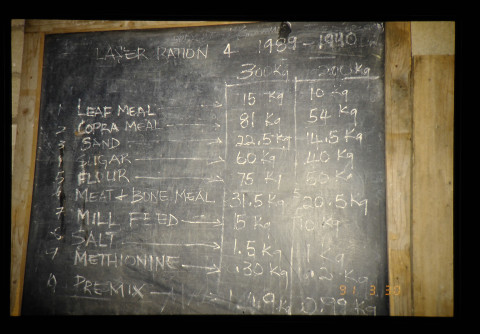 LAYER RATION 4 1989-1990
300Kg 200Kg
1 LEAF MEAL 15 Kg 10 Kg
2 COPRA MEAL 81 Kg 54 Kg
3 SAND 22.5Kg 14.5Kg
4 SUGAR 60Kg 40 Kg
5 FLOUR 75 Kg 50 Kg
6 MEAT & BONE MEAL 31.5 Kg 20.5Kg
7 MILL FEED 15 Kg 10 Kg
8 SALT 1.5 Kg 1 Kg
METHIONINE .30 Kg .2 Kg
PREMIX Kg 0.99 Kg
91 3 30